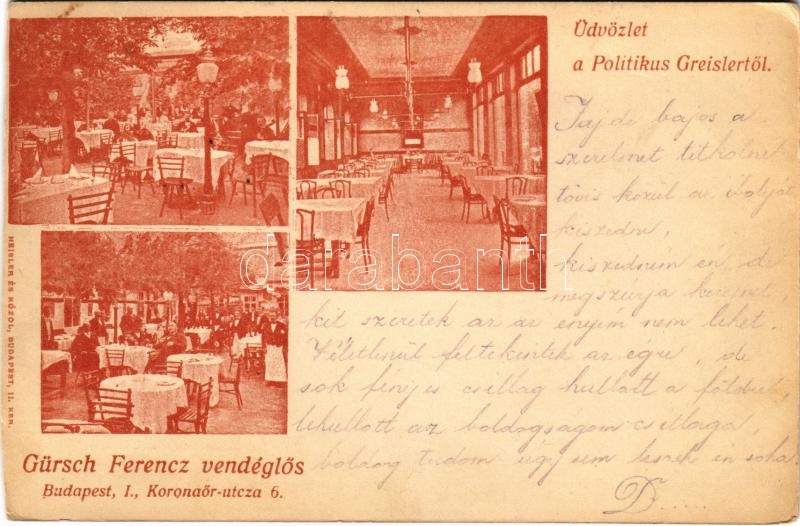 Üdvözlet
a Politikus Greislertől.
Jaj de bajos a
szerelmet titkolni
tövis közül az ibolyát
kiszedni,
kiszedném én, de
megszúrja kezemet,
kit szeretek az az enyém nem lehet.
Véletlenül feltekintek az égre, de
sok fényes csillag hullott a földre,
lehullott az boldogságom csillaga,
boldog tudom úgy sem leszek én soha.
D.....
HEISLER ÉS KÓZOL, BUDAPEST, II. KER.
Gürsch Ferencz vendéglős
Budapest, I., Koronaőr-utcza 6.
darabanth